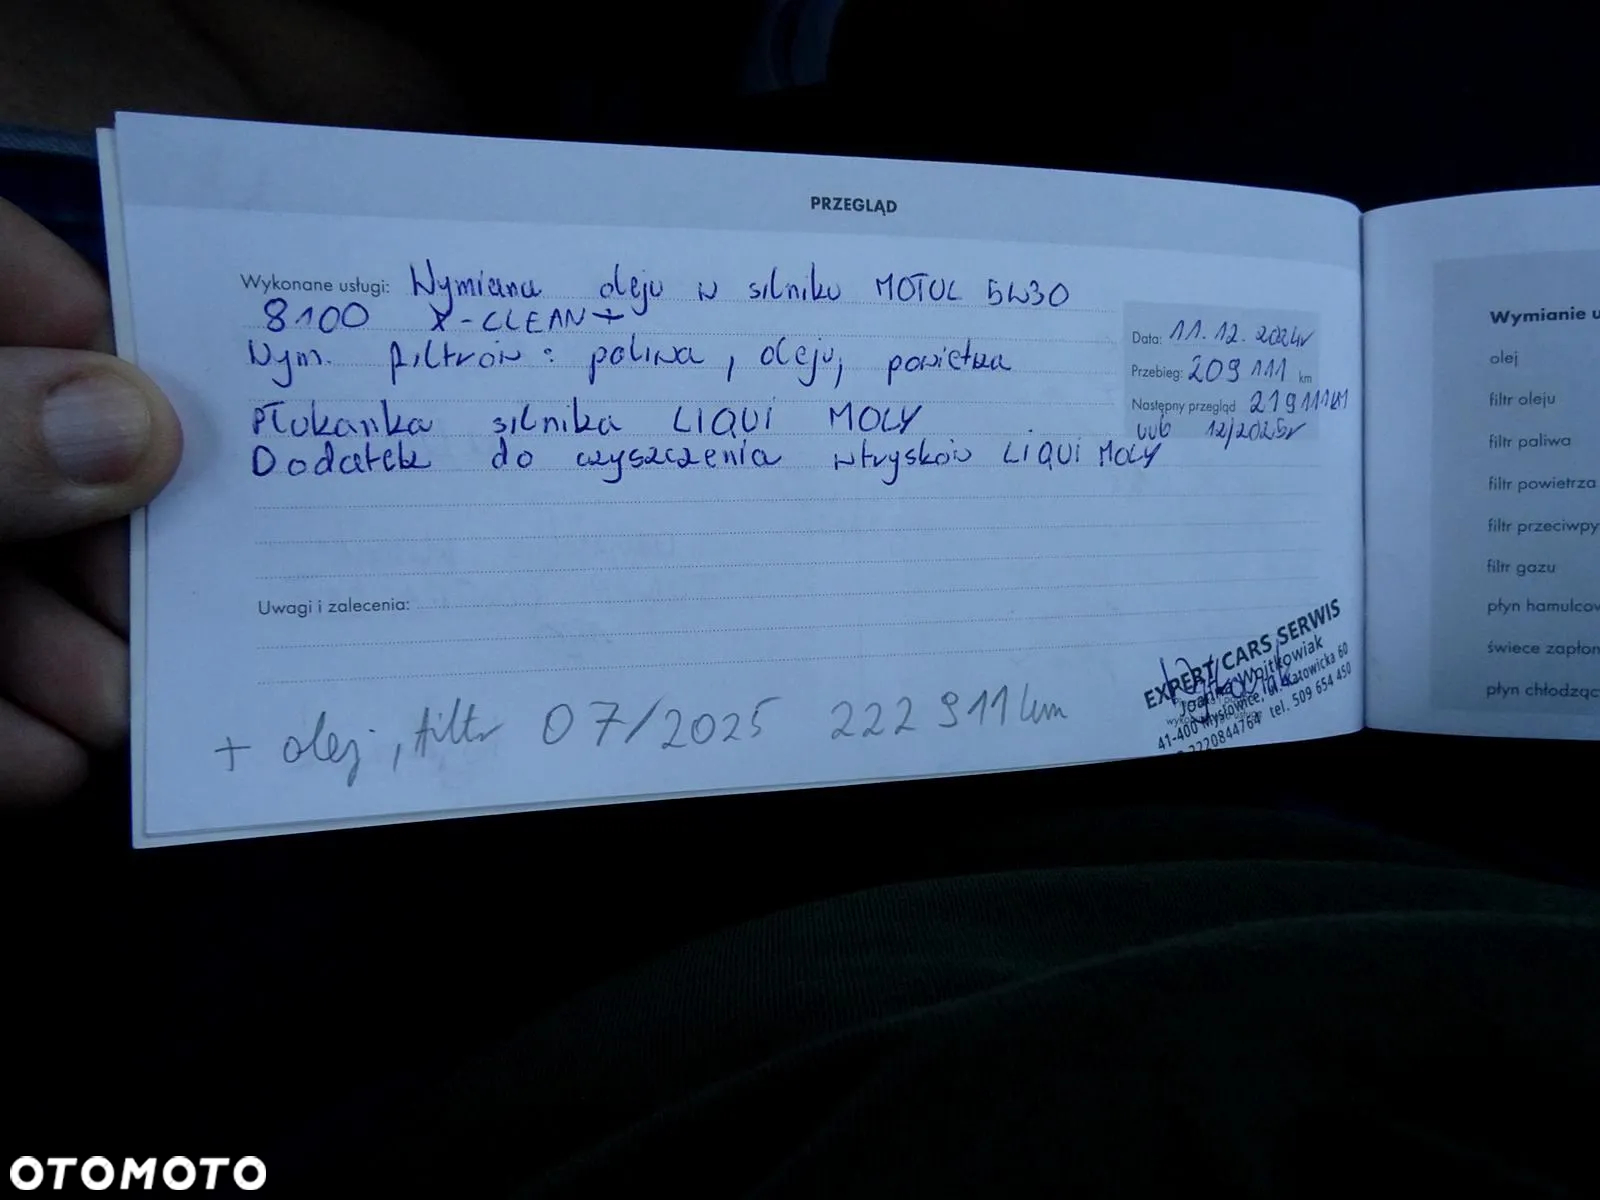 PRZEGLĄD
Wykonane usługi: Wymiana oleju w silniku MOTUL 5W30
8100 X-CLEAN+
Wym. filtrów: paliwa, oleju, powietrza
Płukanka silnika LIQUI MOLY
Dodatek do czyszczenia wtrysków LIQUI MOLY
Data: 11.12.2024r
Przebieg: 209 111 km
Następny przegląd 219111KM
lub 12/2025r
Uwagi i zalecenia:
EXPERT CARS SERWIS
Joanna Wojtkowiak
41-400 Mysłowice, ul. Katowicka 60
2220844764 tel. 509 654 450
+ olej, filtr 07/2025 222 911 km
Wymianie u
olej
filtr oleju
filtr paliwa
filtr powietrza
filtr przeciwpy
filtr gazu
płyn hamulcow
świece zapłon
płyn chłodząc
OTOMOTO